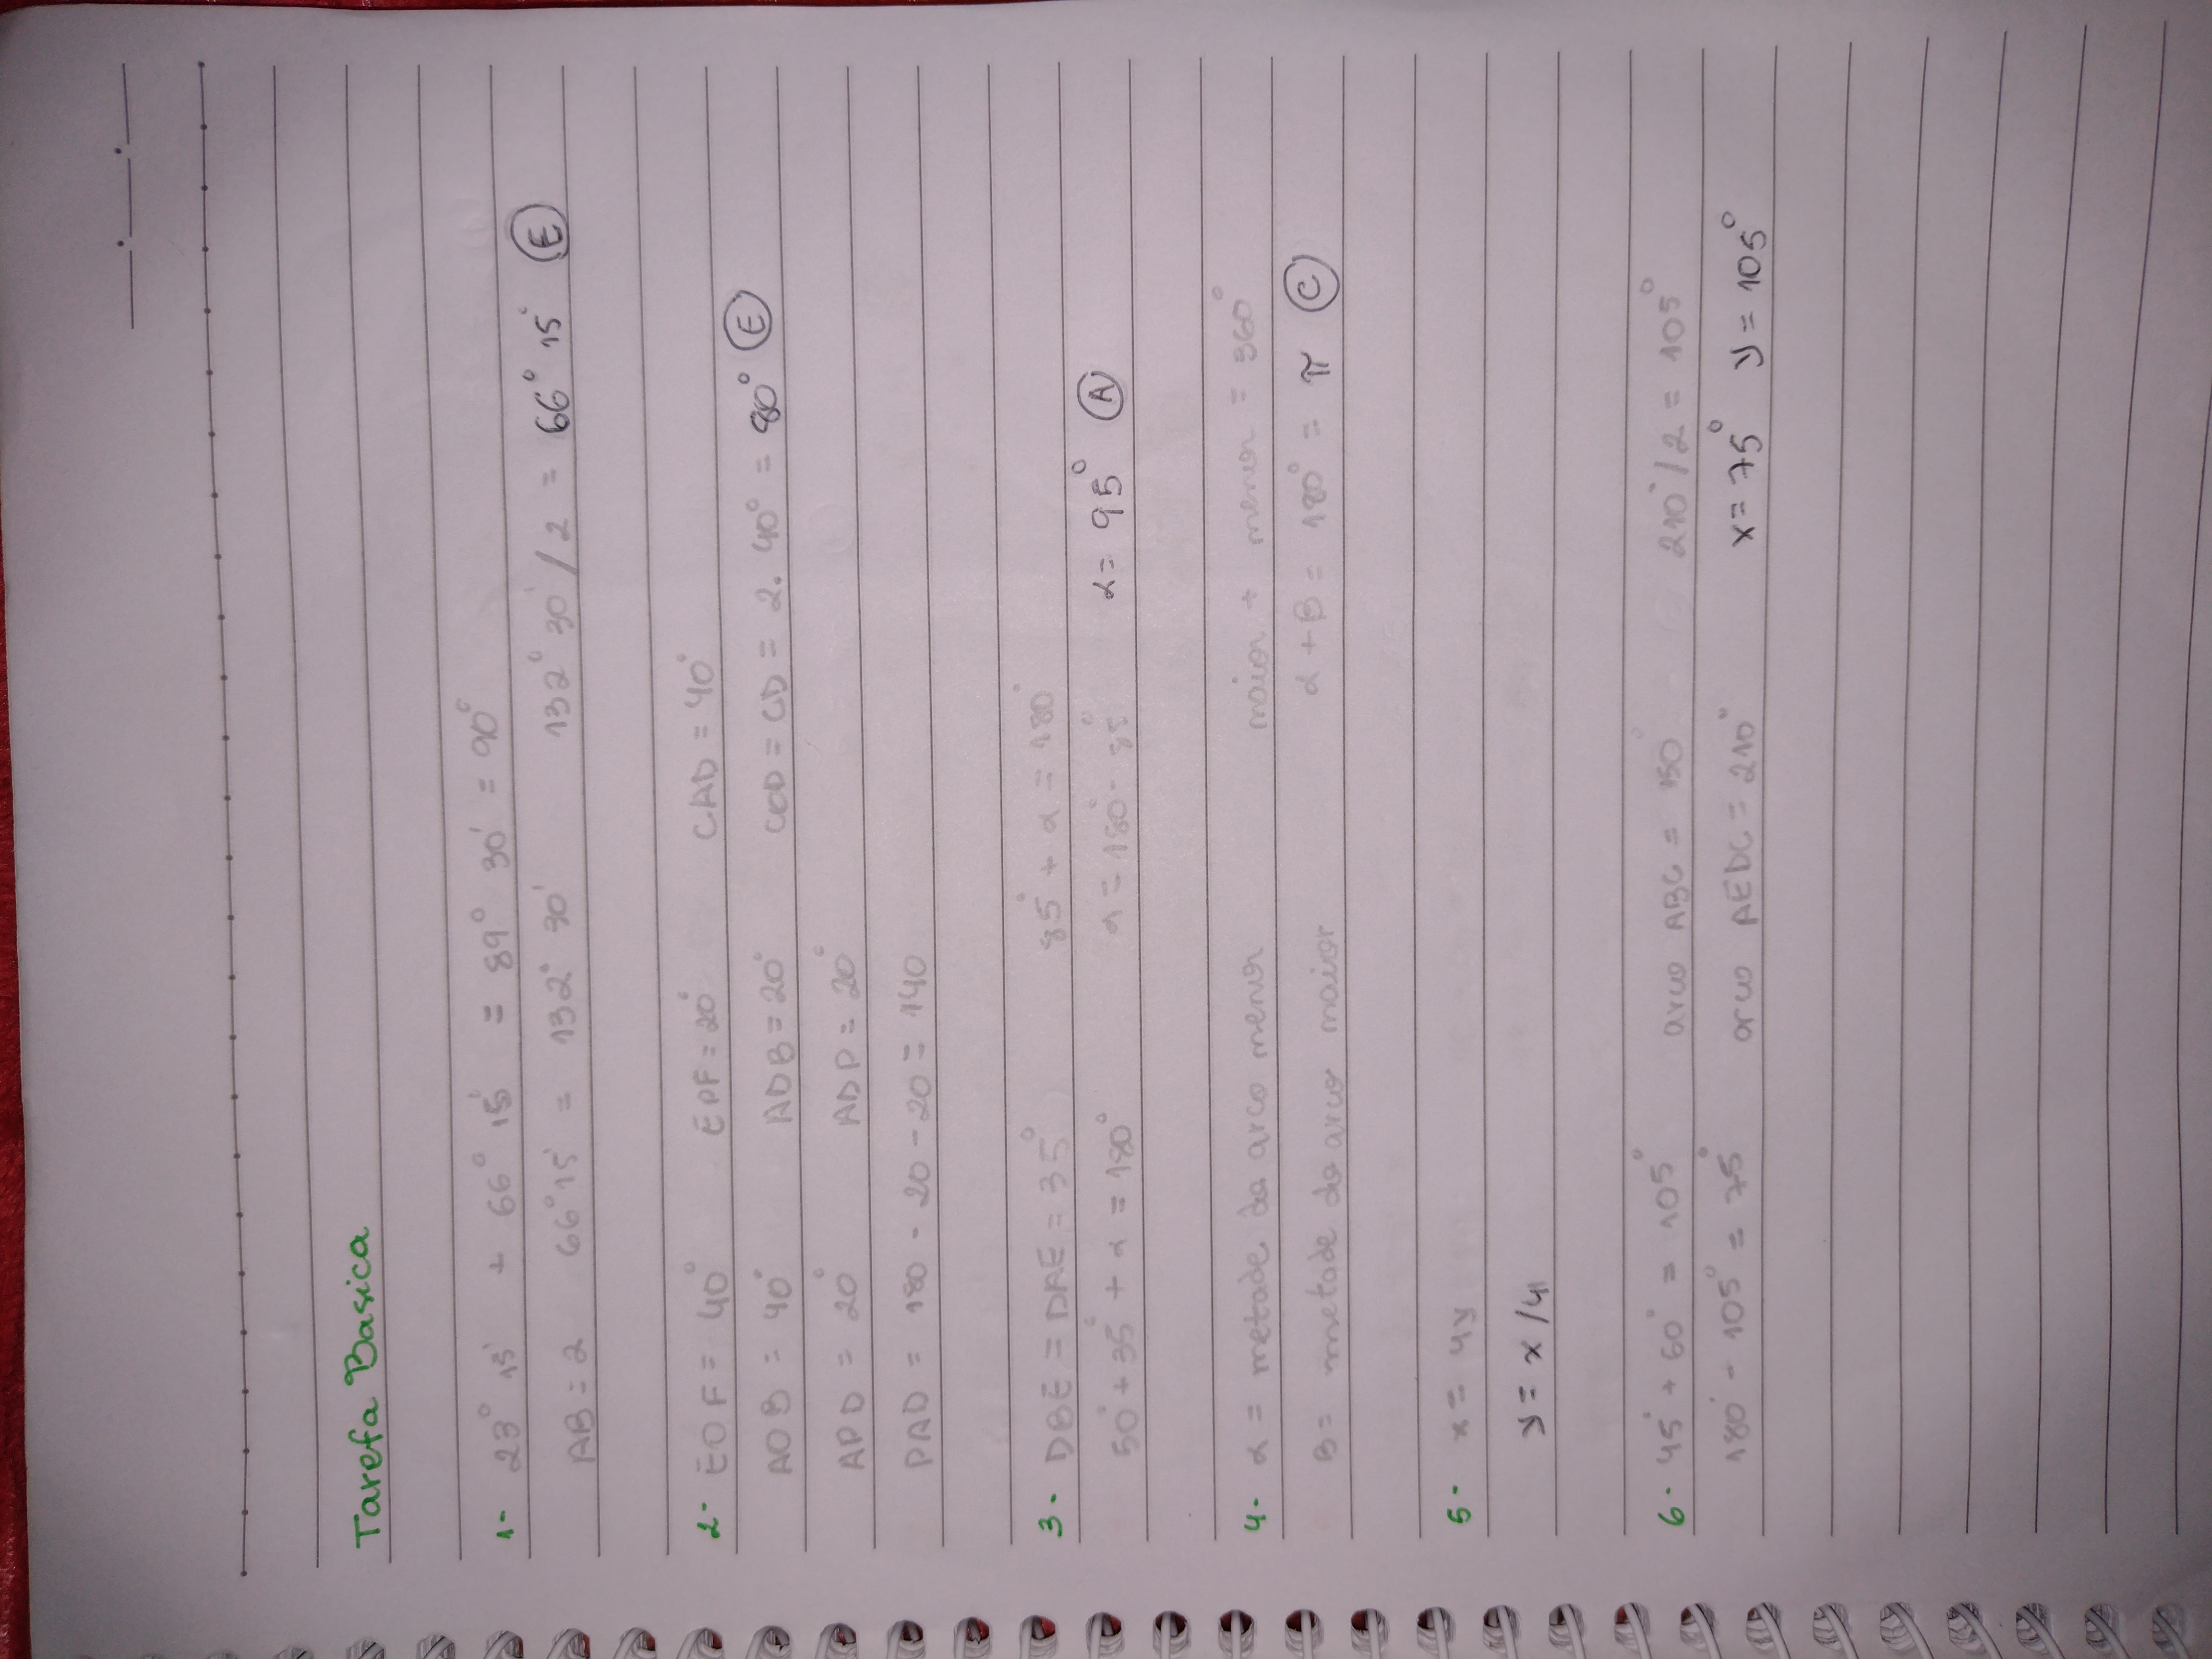 Tarefa Basica
1- 23° 15' + 66° 15' = 89° 30' = 90°
AB = 2 66° 15' = 132° 30' 132° 30' / 2 = 66° 15' E
2- EOF = 40° EPF = 20° CAD = 40°
AOB = 40° ADB = 20° COD = CD = 2. 40° = 80° E
APD = 20° ADP = 20°
PAD = 180 - 20 - 20 = 140
3- DBE = DAE = 35° 85° + α = 180°
50° + 35° + α = 180° α = 180° - 85° α = 95° A
4- α = metade do arco menor maior + menor = 360°
B = metade do arco maior α + B = 180° = π C
5- x = 4y
y = x / 4
6- 45° + 60° = 105° arco ABC = 150° 210° / 2 = 105°
180° - 105° = 75° arco AEDC = 210° x = 75° y = 105°